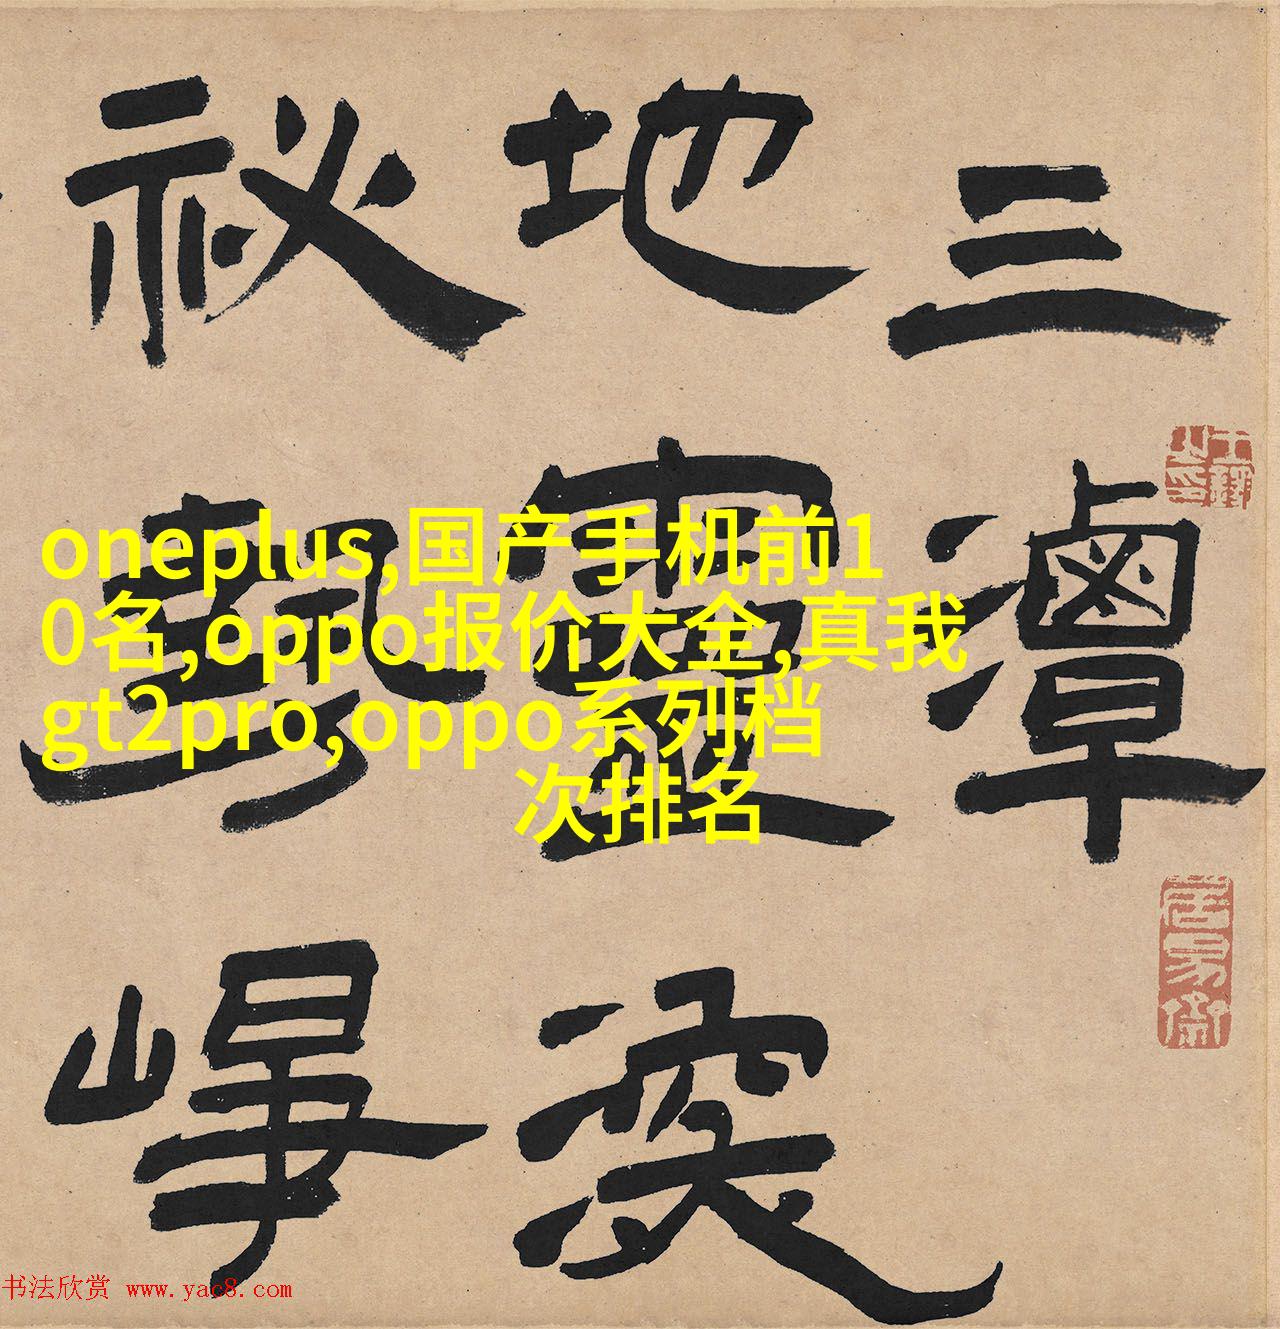 三潭
地靈
祕勢崢
oneplus,国产手机前1
0名,oppo报价大全,真我
gt2pro,oppo系列档
次排名
书法欣赏 www.yac8.com